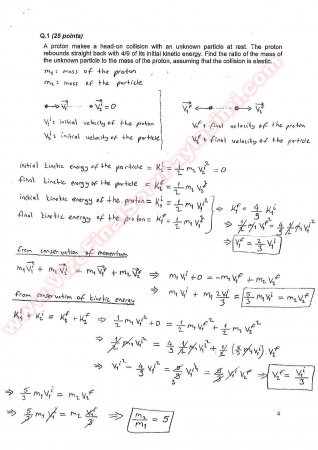 Q.1 (25 points)
A proton makes a head-on collision with an unknown particle at rest. The proton
rebounds straight back with 4/9 of its initial kinetic energy. Find the ratio of the mass of
the unknown particle to the mass of the proton, assuming that the collision is elastic.
m₁: mass of the proton
m₂: mass of the particle
V₁ⁱ V₂ⁱ=0
V₁ᶠ V₂ᶠ
V₁ⁱ: initial velocity of the proton V₁ᶠ: final velocity of the proton
V₂ⁱ: initial velocity of the particle V₂ᶠ: final velocity of the particle
initial kinetic energy of the particle = K₂ⁱ = 1/2 m₂ V₂ⁱ² = 0
final kinetic energy of the particle = K₂ᶠ = 1/2 m₂ V₂ᶠ²
initial kinetic energy of the proton = K₁ⁱ = 1/2 m₁ V₁ⁱ² ⇒ K₁ᶠ = 4/9 K₁ⁱ
final kinetic energy of the proton = K₁ᶠ = 1/2 m₁ V₁ᶠ² ⇒ 1/2 m₁ V₁ᶠ² = 4/9 1/2 m₁ V₁ⁱ²
⇒ V₁ᶠ = 2/3 V₁ⁱ
from conservation of momentum
m₁V₁ⁱ + m₂V₂ⁱ = m₁V₁ᶠ + m₂V₂ᶠ ⇒ m₁V₁ⁱ + 0 = -m₁V₁ᶠ + m₂V₂ᶠ
⇒ m₁V₁ⁱ + m₁ 2V₁ⁱ/3 = 5/3 m₁V₁ⁱ = m₂V₂ᶠ
from conservation of kinetic energy
K₁ⁱ + K₂ⁱ = K₁ᶠ + K₂ᶠ ⇒ 1/2 m₁V₁ⁱ² + 0 = 1/2 m₁V₁ᶠ² + 1/2 m₂V₂ᶠ²
⇒ 1/2 m₁V₁ⁱ² = 4/9 1/2 m₁V₁ⁱ² + 1/2 (5/3 m₁V₁ⁱ).V₂ᶠ
⇒ V₁ⁱ² - 4/9 V₁ⁱ² = 5/9 V₁ⁱ² = 5/3 V₁ⁱ V₂ᶠ ⇒ V₂ᶠ = V₁ⁱ/3
⇒ 5/3 m₁V₁ⁱ = m₂ V₂ᶠ
⇒ 5/3 m₁ V₁ⁱ = m₂ V₁ⁱ/3 ⇒ m₂/m₁ = 5